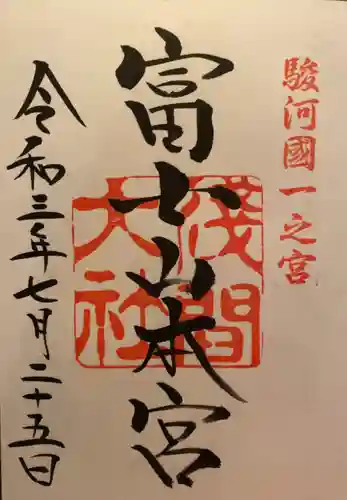 駿河國一之宮
富士山本宮
淺間大社
令和三年七月二十五日